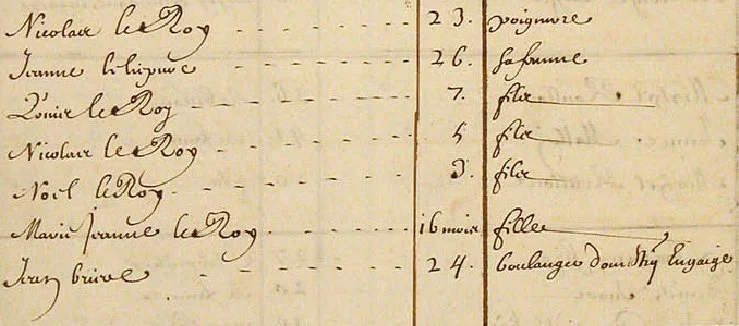 Nicolas le Roy 23. peigneure
Jeanne leliepure 26. sa femme
Louis le Roy 7. filz
Nicolas le Roy 5 filz
Noel le Roy 3. filz
Marie Jeanne le Roy 16 mois fille
Jean 24. boulanger domestiq Engaigé